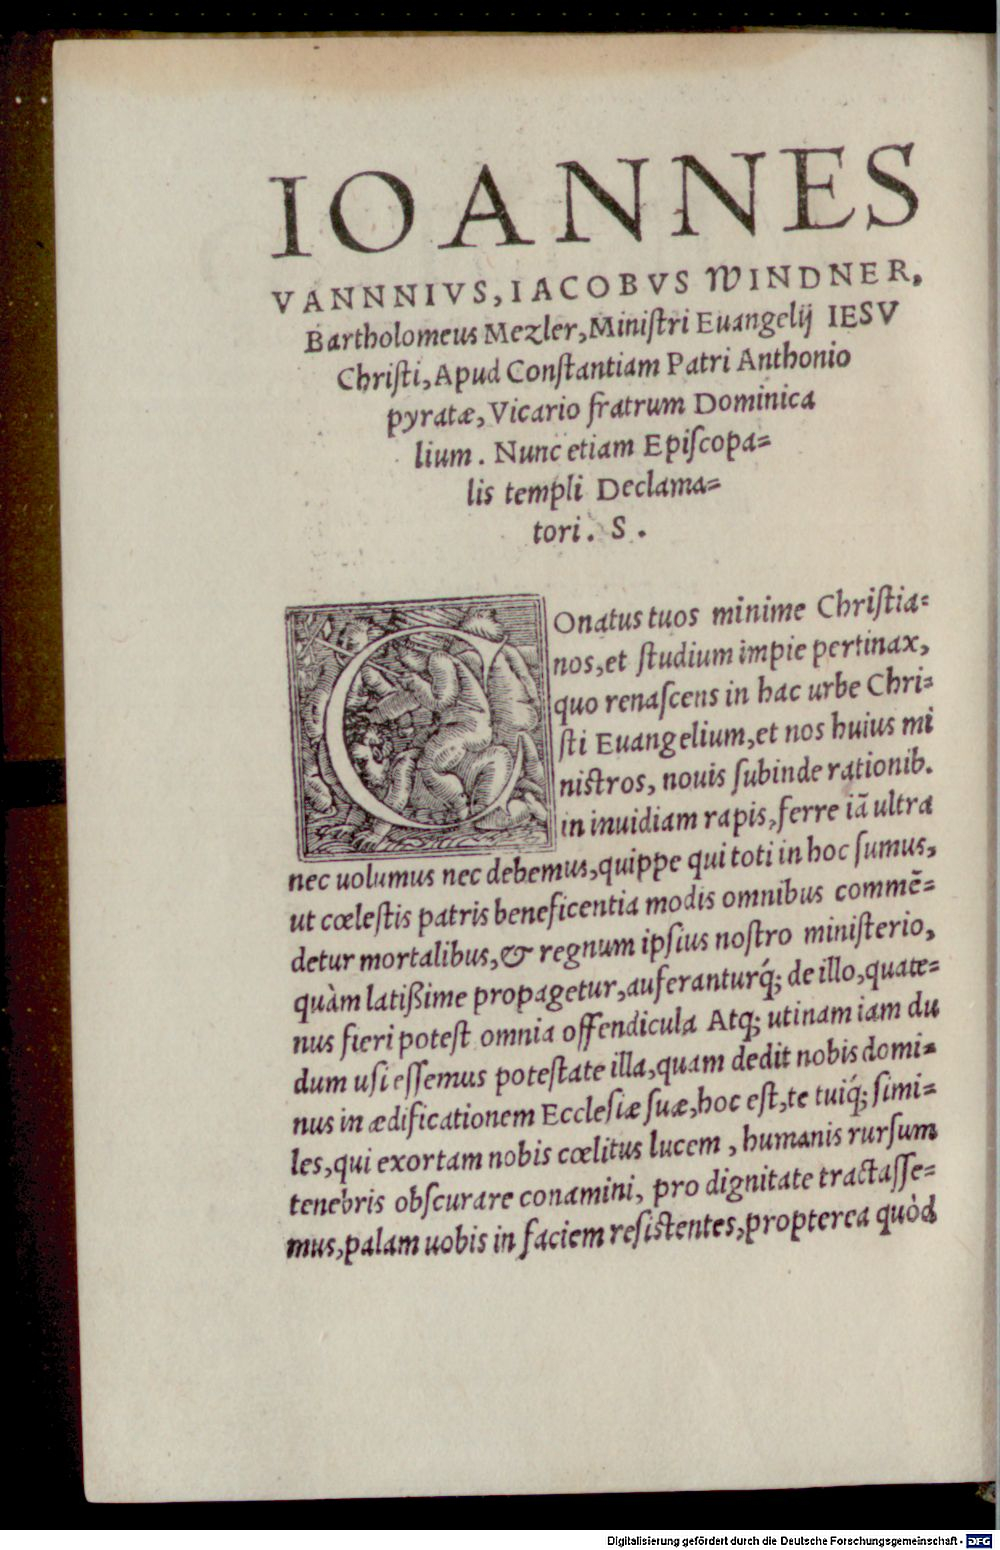 IOANNES
VANNNIVS, IACOBVS WINDNER,
Bartholomeus Mezler, Miniſtri Euangelij IESV
Chriſti, Apud Conſtantiam Patri Anthonio
pyratæ, Vicario fratrum Dominica
lium. Nunc etiam Epiſcopa=
lis templi Declama=
tori. S.
COnatus tuos minime Chriſtia=
nos, et ſtudium impie pertinax,
quo renaſcens in hac urbe Chri=
ſti Euangelium, et nos huius mi
niſtros, nouis ſubinde rationib.
in inuidiam rapis, ferre iã ultra
nec uolumus nec debemus, quippe qui toti in hoc ſumus,
ut cœleſtis patris beneficentia modis omnibus commẽ=
detur mortalibus, & regnum ipſius noſtro miniſterio,
quàm latißime propagetur, auferanturq́; de illo, quate=
nus fieri poteſt omnia offendicula Atq; utinam iam du
dum uſi eſſemus poteſtate illa, quam dedit nobis domi=
nus in ædificationem Eccleſiæ ſuæ, hoc eſt, te tuiq́; ſimi=
les, qui exortam nobis cœlitus lucem, humanis rurſum
tenebris obſcurare conamini, pro dignitate tractaſſe=
mus, palam uobis in faciem reſiſtentes, propterea quòd
Digitalisierung gefördert durch die Deutsche Forschungsgemeinschaft - DFG